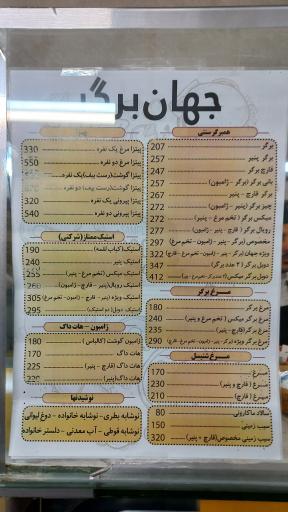 جهان برگر
همبرگر سنتی
برگر 207
برگر پنیر 257
قارچ برگر 247
بانی برگر (برگر - ژامبون) 257
برگر قارچ - پنیر 297
چیز برگر (پنیر - ژامبون) 272
میکس برگر (تخم مرغ - پنیر) 272
رویال برگر (قارچ - پنیر - ژامبون) 277
مخصوص (برگر - پنیر - ژامبون - تخم مرغ) 297
322
دوبل برگر (2 عدد برگر) 347
412
مرغ برگر
مرغ برگر 180
مرغ برگر میکس (تخم مرغ و پنیر) 240
مرغ برگر (قارچ - پنیر) 235
290
مرغ شنیسل
مرغ 170
مرغ (قارچ و پنیر) 230
مرغ (قارچ) 210
سالاد ماکارونی 80
سیب زمینی 150
سیب زمینی مخصوص (قارچ - پنیر) 320
پیتزا
پیتزا مرغ یک نفره 330
پیتزا مرغ دو نفره 550
پیتزا گوشت (رست بیف) یک نفره
پیتزا گوشت (رست بیف) دو نفره
پیتزا پپرونی یک نفره 320
پیتزا پپرونی دو نفره 540
استیک ممتاز (شرکتی)
استیک (کباب لقمه) 190
استیک پنیر 240
استیک میکس (تخم مرغ - پنیر)
استیک رویال (پنیر - قارچ - ژامبون)
استیک ویژه (پنیر - قارچ - ژامبون - تخم مرغ) 305
استیک دوبل (دو استیک) 295
ژامبون - هات داگ
ژامبون گوشت (کالباس) 180
هات داگ 170
هات داگ (قارچ - پنیر) 225
هات داگ (پنیر) 220
نوشیدنیها
نوشابه بطری - نوشابه خانواده - دوغ لیوانی
نوشابه قوطی - آب معدنی - دلستر خانواده